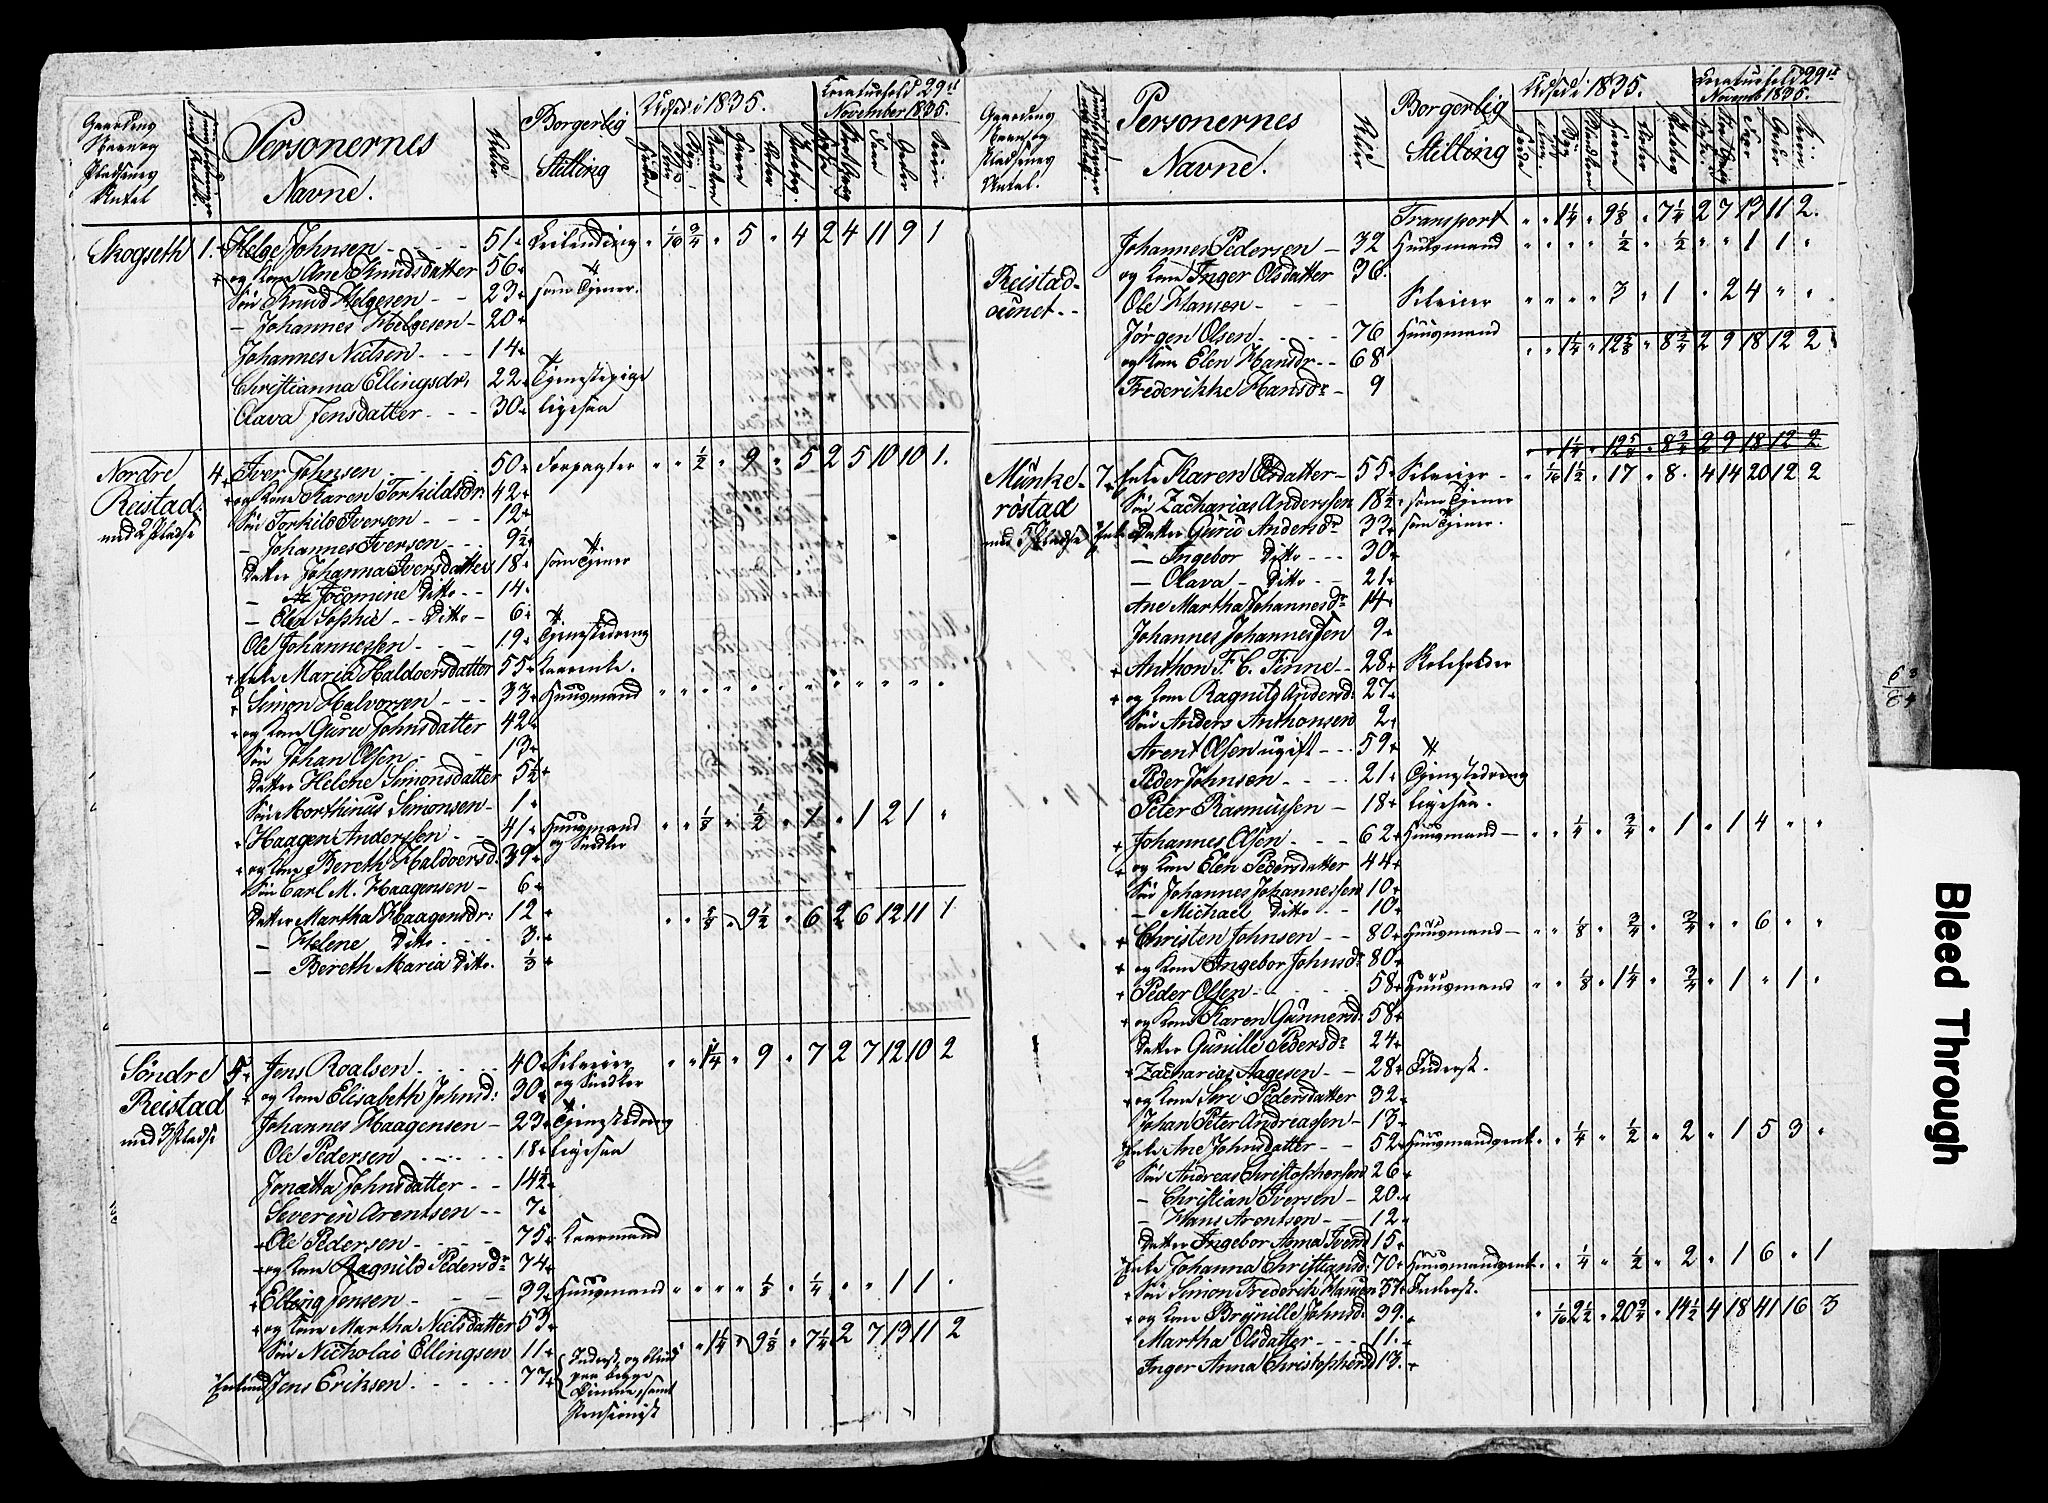 Personernes
Navne.
Alder
Borgerlig
Stilling
Udsæd i 1835.
Kreaturhold 29de
November 1835.
Skogseth 1. Helge Johnsen 51 Leilænding " 1/16 3/4 " 5 " 4 2 4 11 9 1
og Kone Ane Knudsdatter 56
Søn Knud Helgesen 23 som Tjener.
— Johannes Helgesen 20
Johannes Nielsen 14
Christianna Ellingsdr. 22 Tjenestepige
Olava Jensdatter 30 ligesaa
Nordre 4 Iver Johnsen 50 Forpagter " " 1/2 " 9 " 5 2 5 10 10 1.
Reistad og Kone Karen Torkildsdr: 42
med 2 Pladse Søn Torkild Iversen 12
— Johannes Iversen 9 1/2
Datter Johanna Iversdatter 18 som Tjener
— Jocomine Ditto 14
— Elen Sophie Ditto 6
Ole Johannessen 19 Tjenestedreng
Enke Maria Haldvorsdatter 55
Simon Halvorsen 33 Huusmand " " " " " " " " " " " "
og Kone Guru Johnsdatter 42
Søn Johan Olsen 13
Datter Helene Simonsdatter 5 1/2
Søn Morthinus Simonsen 1
Haagen Anderssen 41 Huusmand " " 1/8 " 1/2 " 1 " 1 2 1 "
og Kone Bereth Haldvorsd: 39 og Snedker
Søn Carl M. Haagensen 6
Datter Martha Haagensdr: 12 " " 5/8 " 9 1/2 " 6 2 6 12 11 1
— Helene Ditto 3
— Bereth Maria Ditto. 1/3
Söndre 5 Jens Roalsen 40 Selveier " " 1 1/4 " 9 " 7 2 7 12 10 2
Reistad og Kone Elisabeth Johnsd: 30 og Snedker
med 3 Pladse Johannes Haagensen 23 Tjenestedreng
Ole Pedersen 18 ligesaa
Jonetta Johnsdatter 14 1/2
Severen Arentsen 7
Ole Pedersen 75 Kaarmand
og Kone Ragnild Pedersdr 74
Elling Jensen 39 Huusmand " " " " 1/8 " 1/4 " " 1 1 "
og Kone Martha Nielsdatter 53
Søn Nicholai Ellingsen 11 " " 1 1/4 " 9 1/8 " 7 1/4 2 7 13 11 2
Enkemd Jens Eriksen 77 Inderst, og blind
paa begge
Öinene, samt
Pensionist
Personernes
Navne.
Alder
Borgerlig
Stilling
Udsæd i 1835.
Kreaturhold 29de
Novemb 1835.
Transport " " 1 1/4 " 9 1/8 " 7 1/4 2 7 13 11 2.
Johannes Pedersen 32 Huusmand " " " " 1/2 " 1/2 " " 1 1 "
og Kone Inger Olsdatter 36
Reistad-
aunet Ole Hansen Selveier " " " " 3 " 1 " 2 4 " "
Jørgen Olsen 76 Huusmand
og Kone Elen Hansdr 68 " " 1 1/4 " 12 5/8 " 8 3/4 2 9 18 12 2
Frederikke Hansdr 9
" " 1 1/4 " 12 5/8 " 8 3/4 2 9 18 12 2
Münke- 7 Enke Karen Olsdatter 55 Selveier " 1/16 1 1/2 " 17 " 8 " 4 14 20 12 2
röstad Søn Zacharias Anderssen 18 1/2 som Tjener
med 5 Pladse Enke Datter Gurü Andersdr 33 som Tjener.
— Ingebor Ditto 30
— Olava Ditto 21
Ane Martha Johannesdr 14
Johannes Johannessen 9
Anthon F. C. Finne 28 Skoleholder
og Kone Ragnild Andersd: 27
Søn Anders Anthonsen 2
Arent Olsen ugift 59
Peder Johnsen 21 Tjenestedreng
Peter Rasmussen 18 ligesaa.
Johannes Olsen 62 Huusmand " " 1/4 " 3/4 " 1 " 1 4 " "
og Kone Elen Pedersdatter 44
Søn Johannes Johannessen 10
— Michael Ditto 10
Christen Johnsen 80 Huusmand " " 1/8 " 3/4 " 3/4 " " 6 " "
og Kone Ingebor Johnsdr 80
Peder Olsen 58 Huusmand " " 1/8 " 1 1/4 " 3/4 " 1 " 1 "
og Kone Karen Gunnersd: 58
Datter Gunille Pedersdr 24
Zacharias Aagesen 28 Inderst.
og Kone Siri Pedersdatter 32
Johan Peter Andreassen 13
Enke Ane Johnsdatter 52 Huusmandsenk " " 1/4 " 1/2 " 2 " 1 5 3 "
Søn Andreas Christophersen 26
— Christian Iversen 20
— Hans Arentsen 12
Datter Ingebor Anna Iversd 15
Enke Johanna Christiansd: 70 Huusmandsenk " " 1/4 " 1/2 " 2 " 1 6 " 1
Søn Simon Frederik Hansen 37 Inderst.
og Kone Brynille Johnsd: 39 " 1/16 2 1/2 " 20 3/4 " 14 1/2 4 18 41 16 3
Martha Olsdatter 11
Inger Anna Christophersd 13
Bleed Through